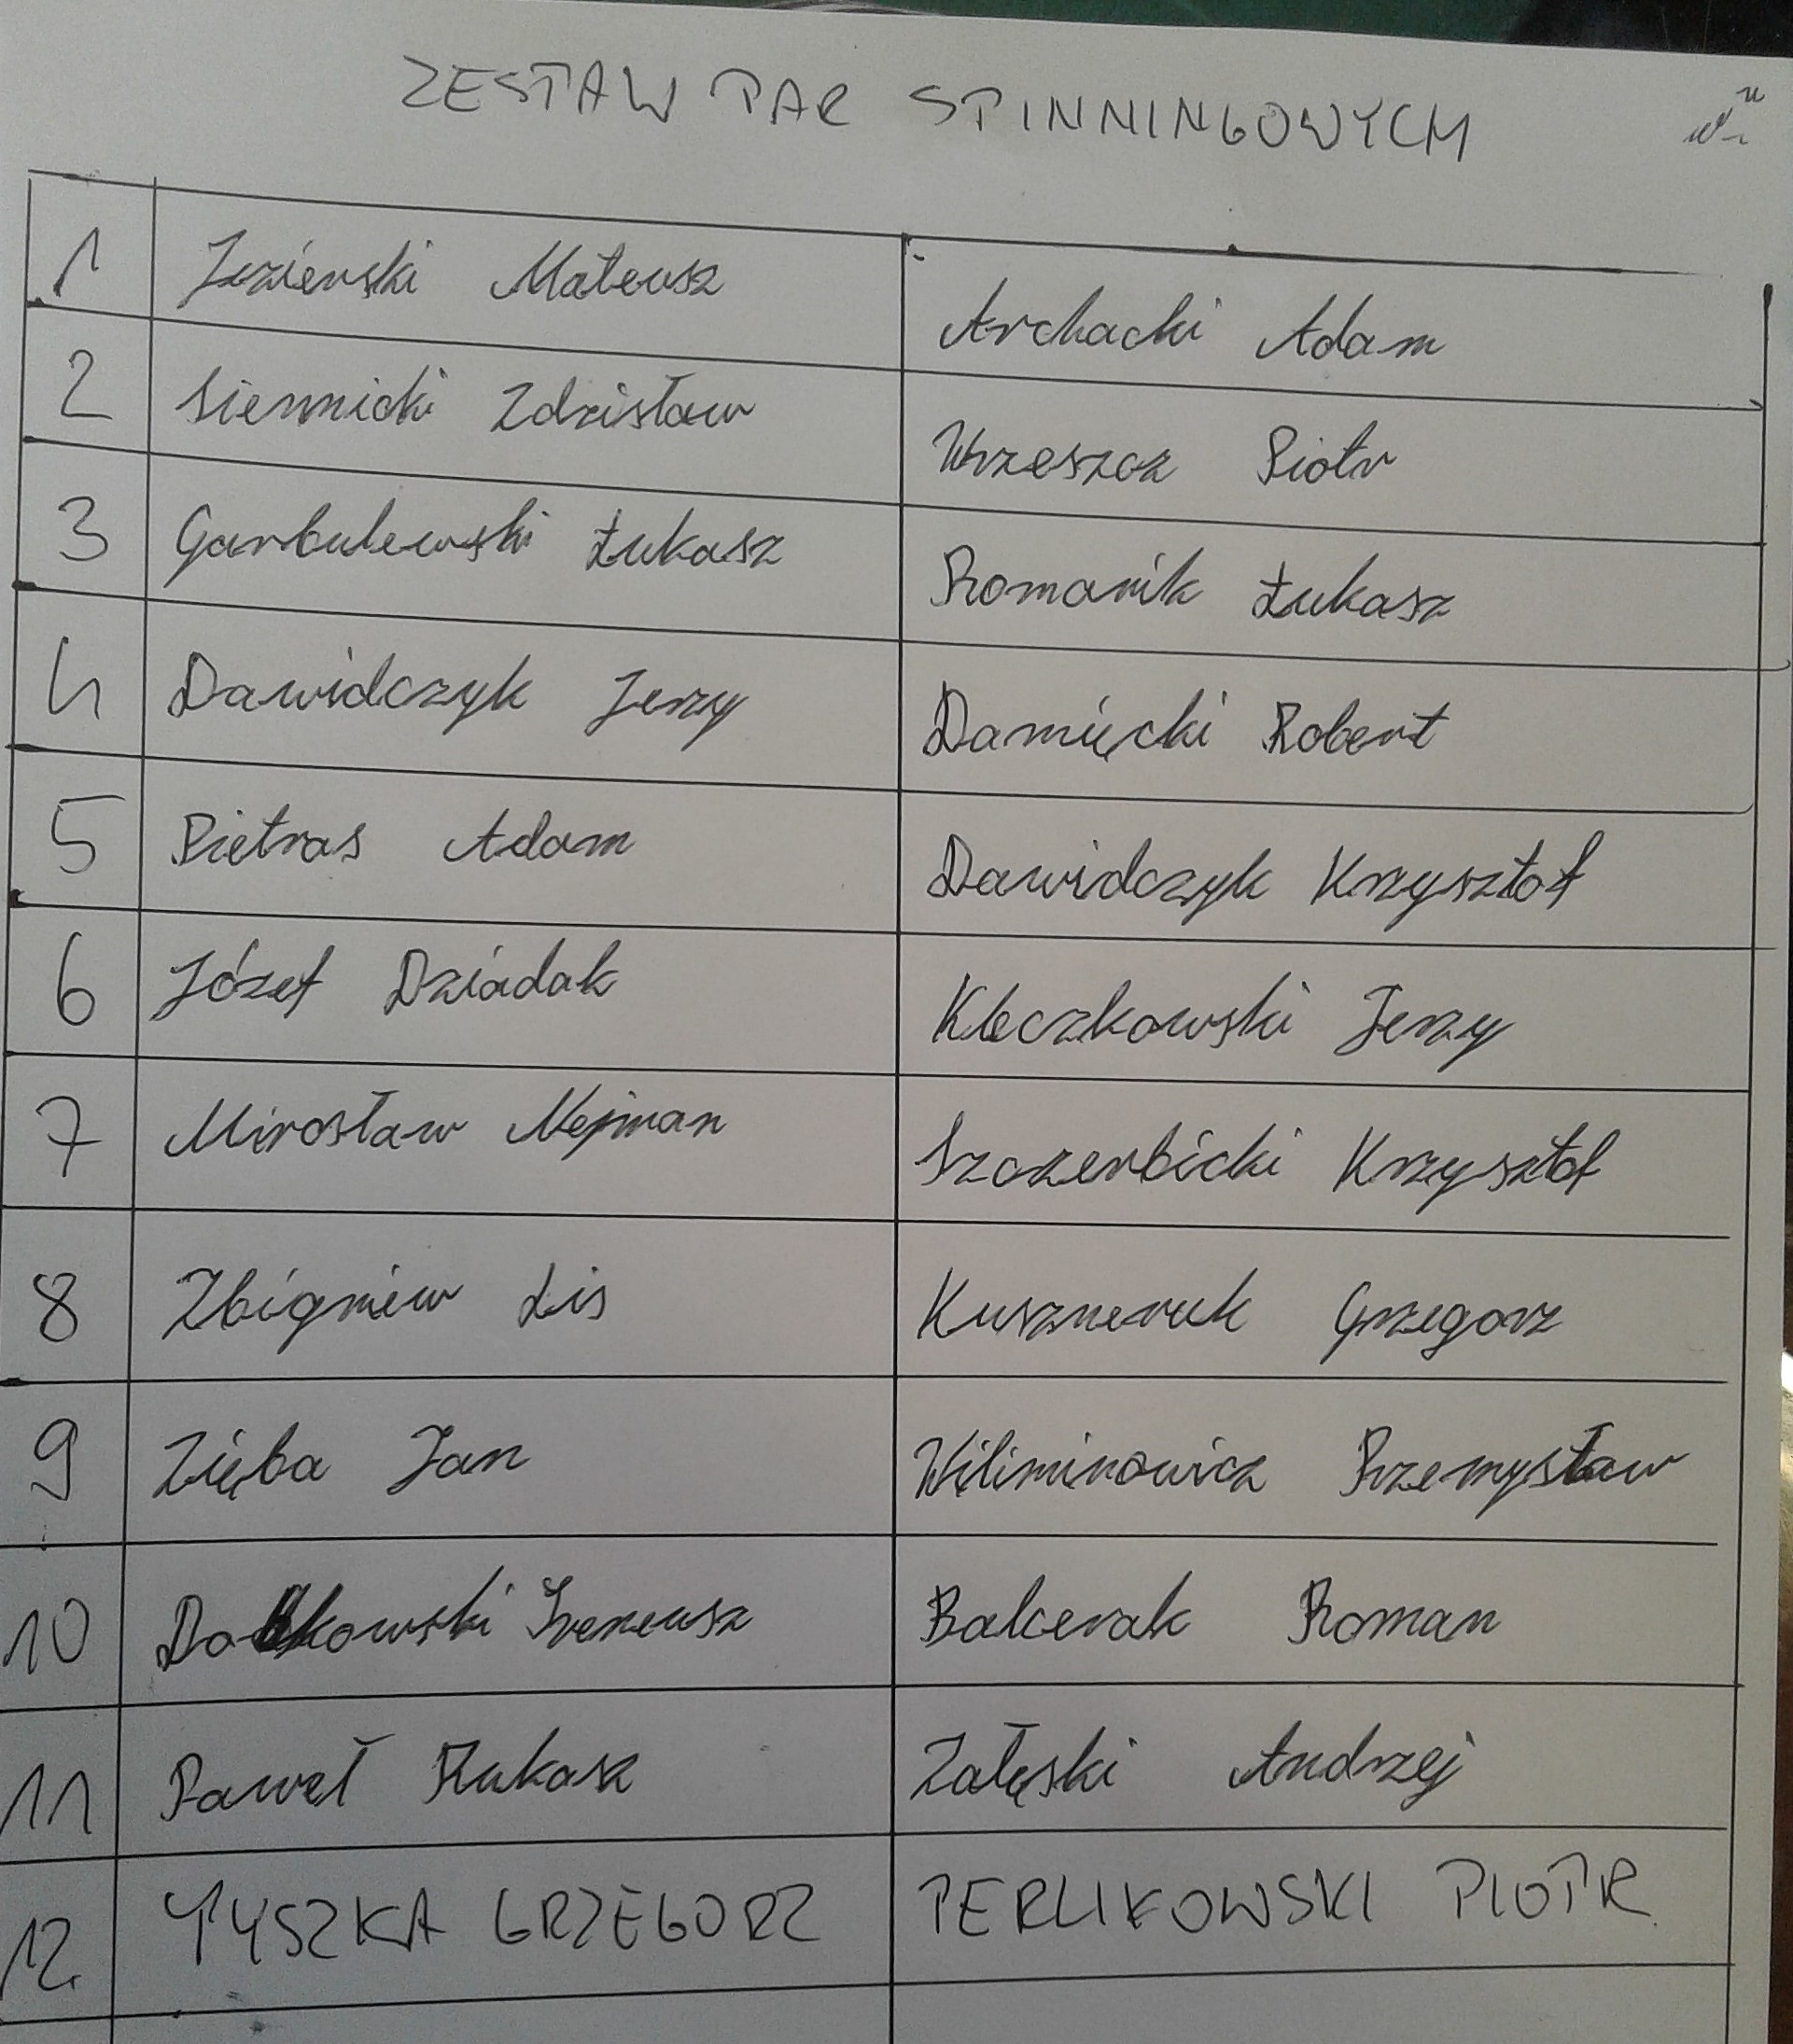 ZESTAW PAR SPINNINGOWYCH
1 Jezierski Mateusz Archacki Adam
2 Siennicki Zdzisław Wrzeszcz Piotr
3 Garbulewski Łukasz Romanik Łukasz
4 Dawidczyk Jerzy Damięcki Robert
5 Pietras Adam Dawidczyk Krzysztof
6 Józef Dziadak Kleczkowski Jerzy
7 Mirosław Nejman Szczerbicki Krzysztof
8 Zbigniew Lis Kuszneruk Grzegorz
9 Zięba Jan Wiliminowicz Przemysław
10 Ireneusz Balcerak Roman
11 Paweł Załęski Andrzej
12. TYSZKA GRZEGORZ PERLIKOWSKI PIOTR